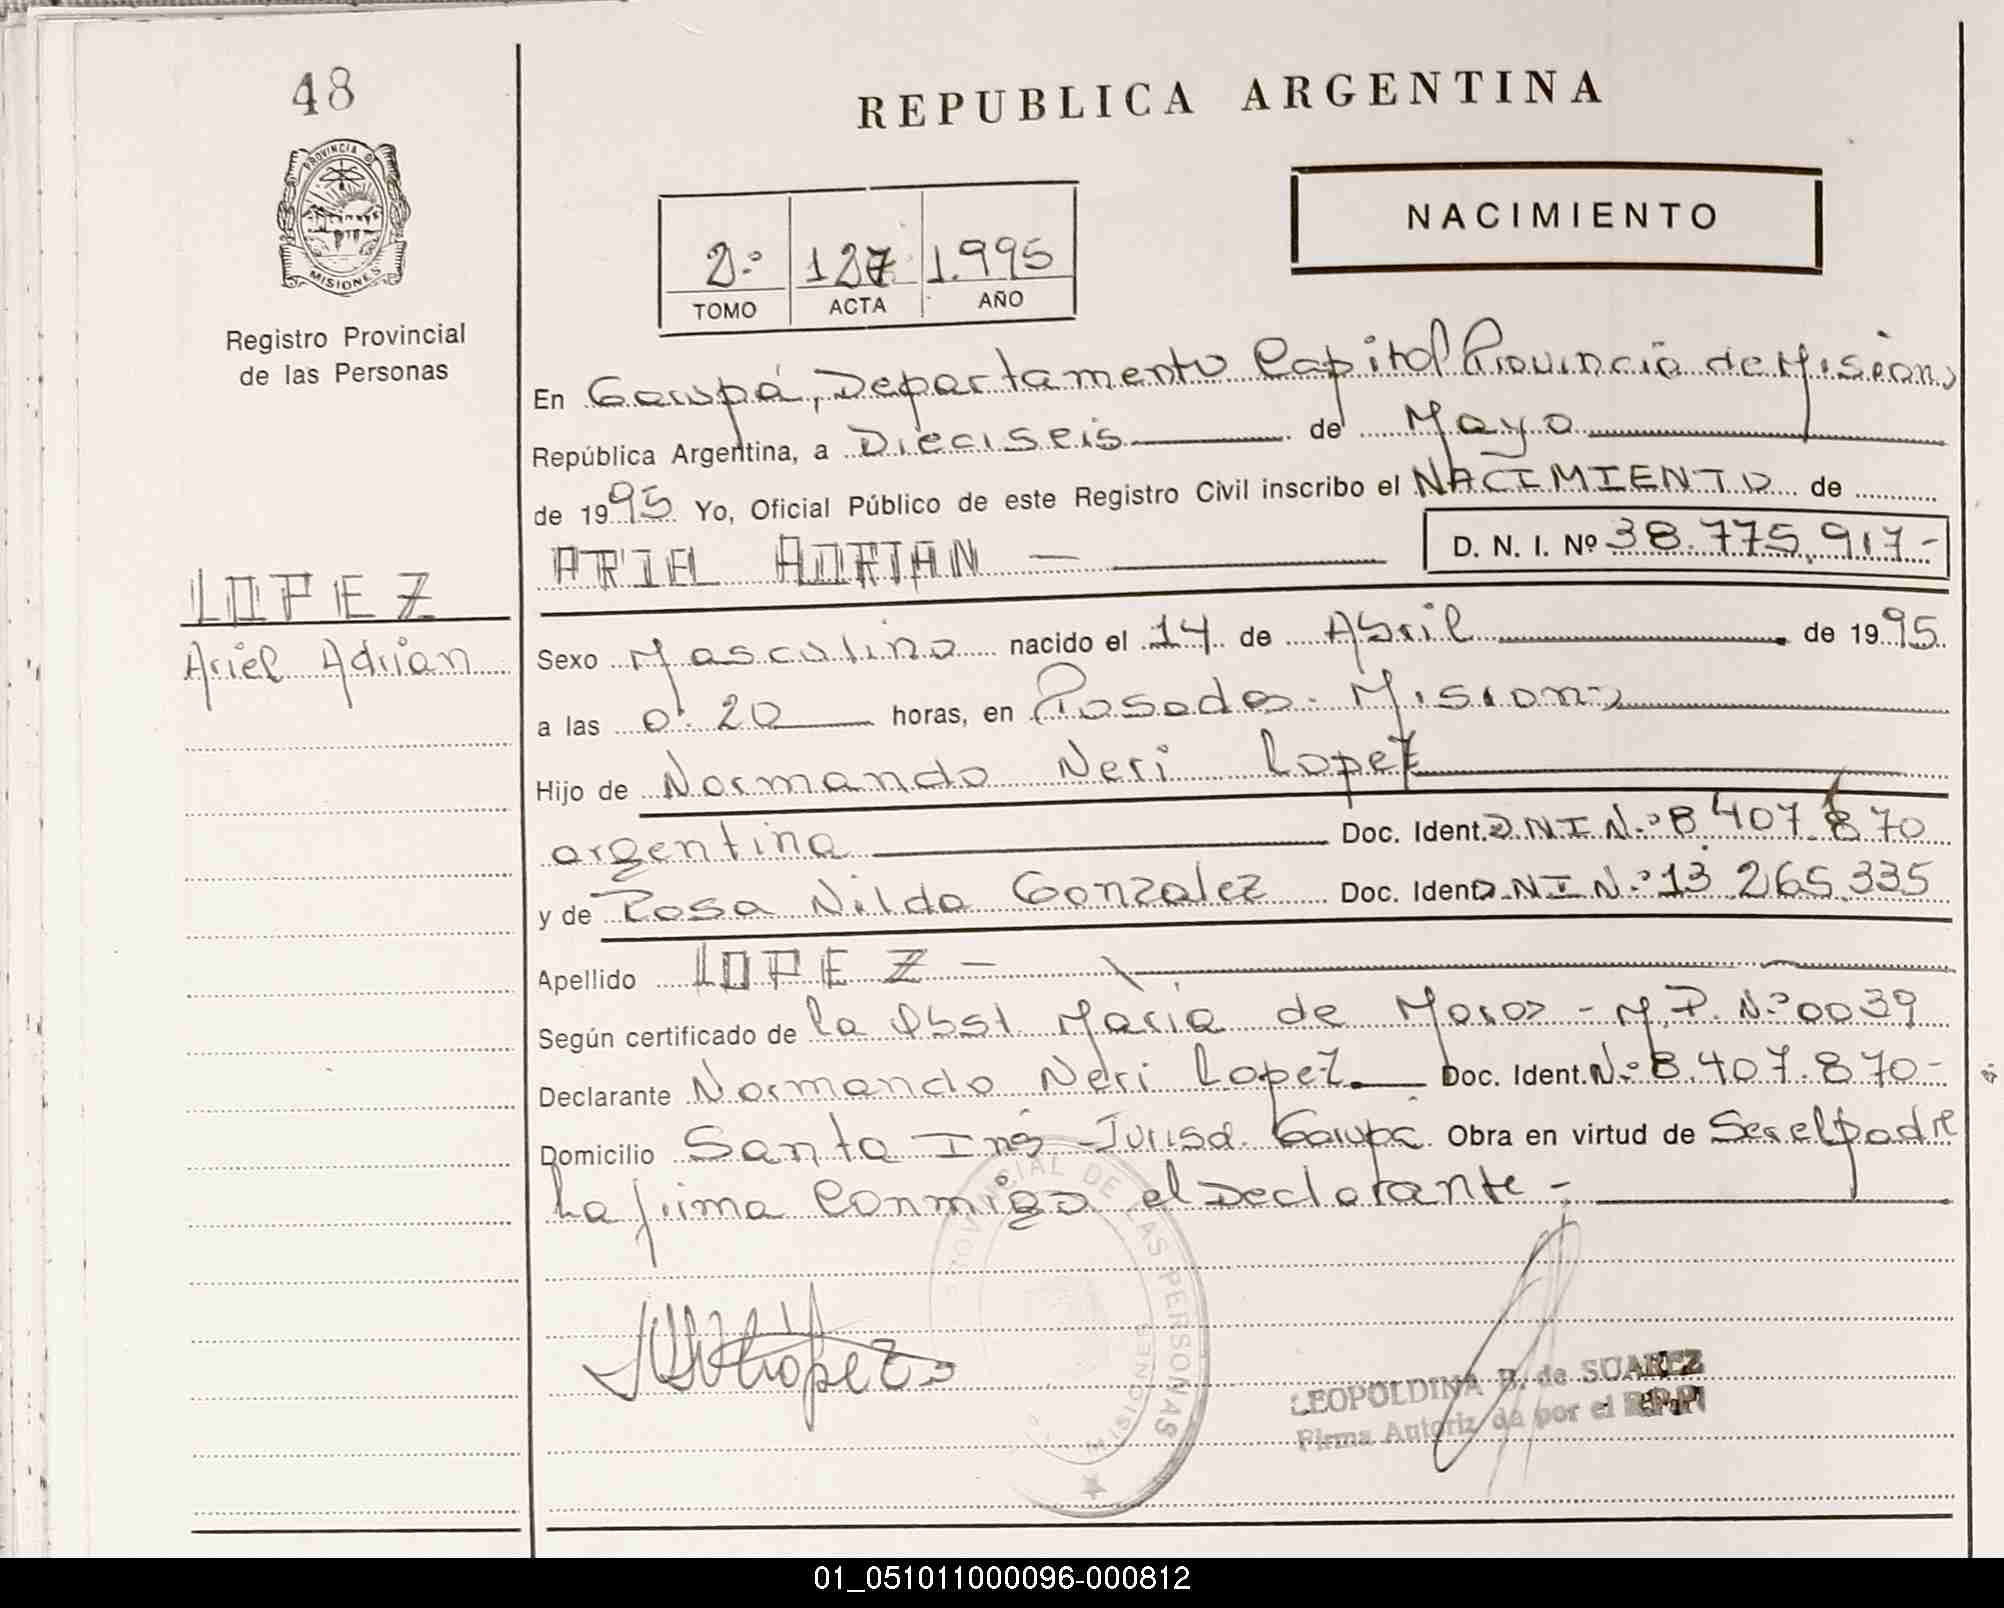 48
PROVINCIA D
MISIONES
Registro Provincial
de las Personas
LOPEZ
Ariel Adrian
REPUBLICA ARGENTINA
NACIMIENTO
2.º 127 1.995
TOMO ACTA AÑO
En Garupá, Departamento Capital Provincia de Misiones
República Argentina, a Dieciseis de Mayo
de 1995 Yo, Oficial Público de este Registro Civil inscribo el NACIMIENTO de
ARIEL ADRIAN — D. N. I. Nº 38.775.917-
Sexo Masculino nacido el 14 de Abril de 1995
a las 0.20 horas, en Posadas - Misiones
Hijo de Normando Neri Lopez
argentina Doc. Ident. DNI N.º 8 407.870
y de Rosa Nilda Gonzalez Doc. Ident. DNI N.º 13 265.335
Apellido LOPEZ -
Según certificado de la Obst Maria de - M.P. N.º 0039
Declarante Normando Neri Lopez. Doc. Ident. N.º 8.407.870-
Domicilio Santa Inés - Jurisd. Garupá Obra en virtud de Ser el padre
La firma Conmigo el Declarante -
PROVINCIAL DE LAS PERSONAS
MISIONES
Lopez
LEOPOLDINA B. de SUAREZ
Firma Autoriz da por el R.P.P.
01_051011000096-000812